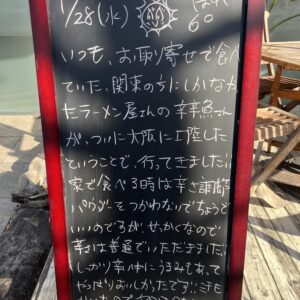 1/28(水) はれ
60
いつも、お取り寄せで食べ
ていた、関東の方にしかなかっ
たラーメン屋さんの辛辛魚さん
が、ついに大阪に上陸した
ということで、行ってきました!!
家で食べる時は辛さ調節
パウダーをつかわないでちょうど
いいのですが、せっかくなので
辛さは普通でいただきました!
しっかり辛い中にうまみもあって
やっぱりおいしかったです!!